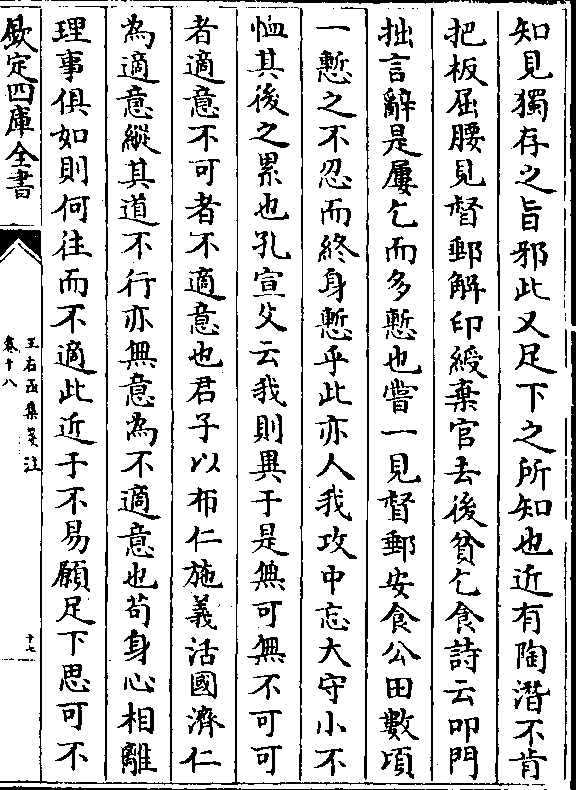 知見獨存之旨邪此又足下之所知也近有陶潛不肯
把板屈腰見督郵解印綬棄官去後貧乞食詩云叩門
拙言辭是屢乞而多慙也嘗一見督郵安食公田數頃
一慙之不忍而終身慙乎此亦人我攻中忘大守小不
恤其後之累也孔宣父云我則異于是無可無不可可
者適意不可者不適意也君子以布仁施義活國濟仁
為適意縱其道不行亦無意為不適意也苟身心相離
理事俱如則何往而不適此近于不易願足下思可不
欽定四庫全書
王右丞集箋注
卷十八
十七